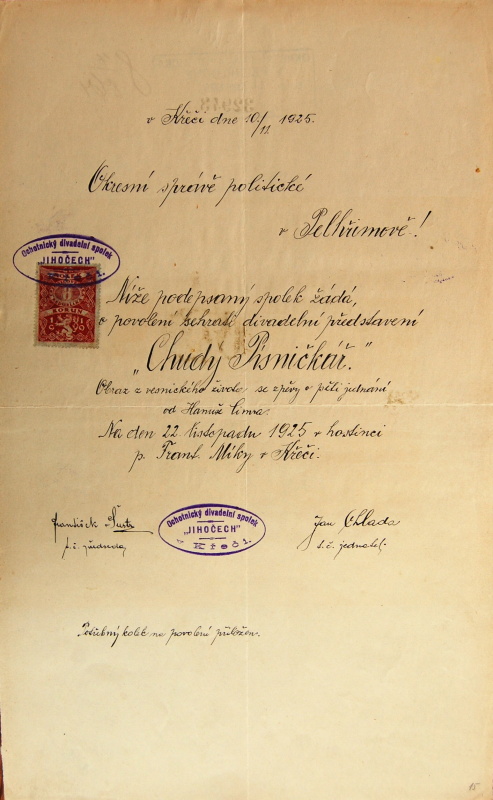 v Křeči dne 10/11 1925.
Okresní správě politické
v Pelhřimově!
Ochotnický divadelní spolek
"JIHOČECH"
Níže podepsaný spolek žádá,
o povolení sehrati divadelní představení
"Chudý Písničkář."
Obraz z vesnického života se zpěvy v pěti jednání
od Hanuš
Na den 22 listopadu 1925 v hostinci
p. Frant. Míky v Křeči.
František Šustr
t.č. předseda
Ochotnický divadelní spolek
"JIHOČECH"
v Křeči.
Jan Chlada
t.č. jednatel.
Potřebný kolek na povolení přiložen.
15